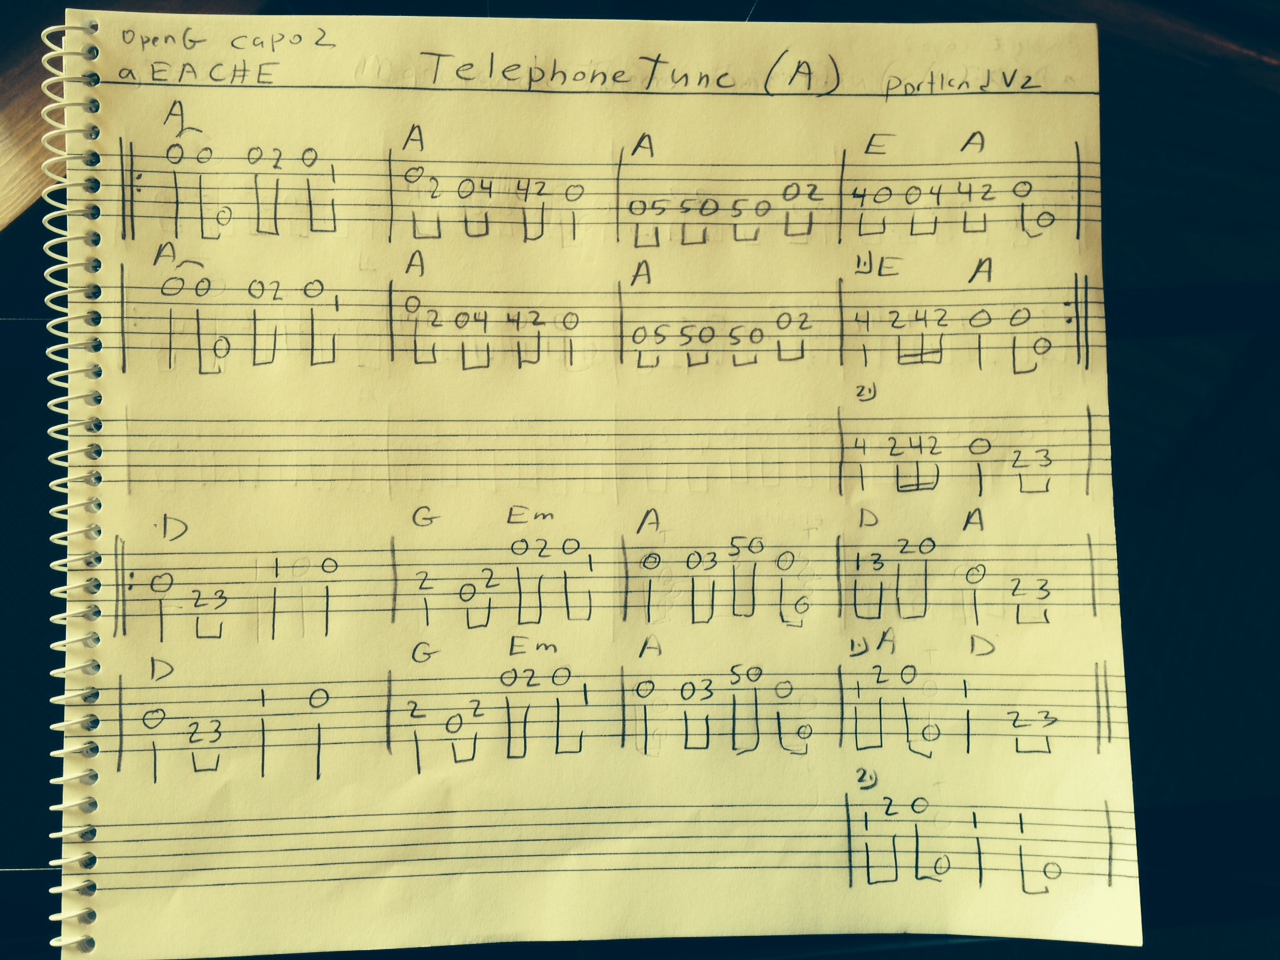 OpenG capo 2
aEACHE Telephone Tune (A) Portland V2
A A A E A
0 0 0 0 2 0 1 0 2 0 4 4 2 0 0 5 5 0 5 0 0 2 4 0 0 4 4 2 0 0
A A A 1) E A
0 0 0 0 2 0 1 0 2 0 4 4 2 0 0 5 5 0 5 0 0 2 4 2 4 2 0 0 0
2)
4 2 4 2 0 2 3
D G Em A D A
0 2 3 1 0 2 0 2 0 2 0 1 0 0 3 5 0 0 0 1 3 2 0 0 2 3
D G Em A 1) A D
0 2 3 1 0 2 0 2 0 2 0 1 0 0 3 5 0 0 0 1 2 0 0 1 2 3
2)
1 2 0 0 1 1 0